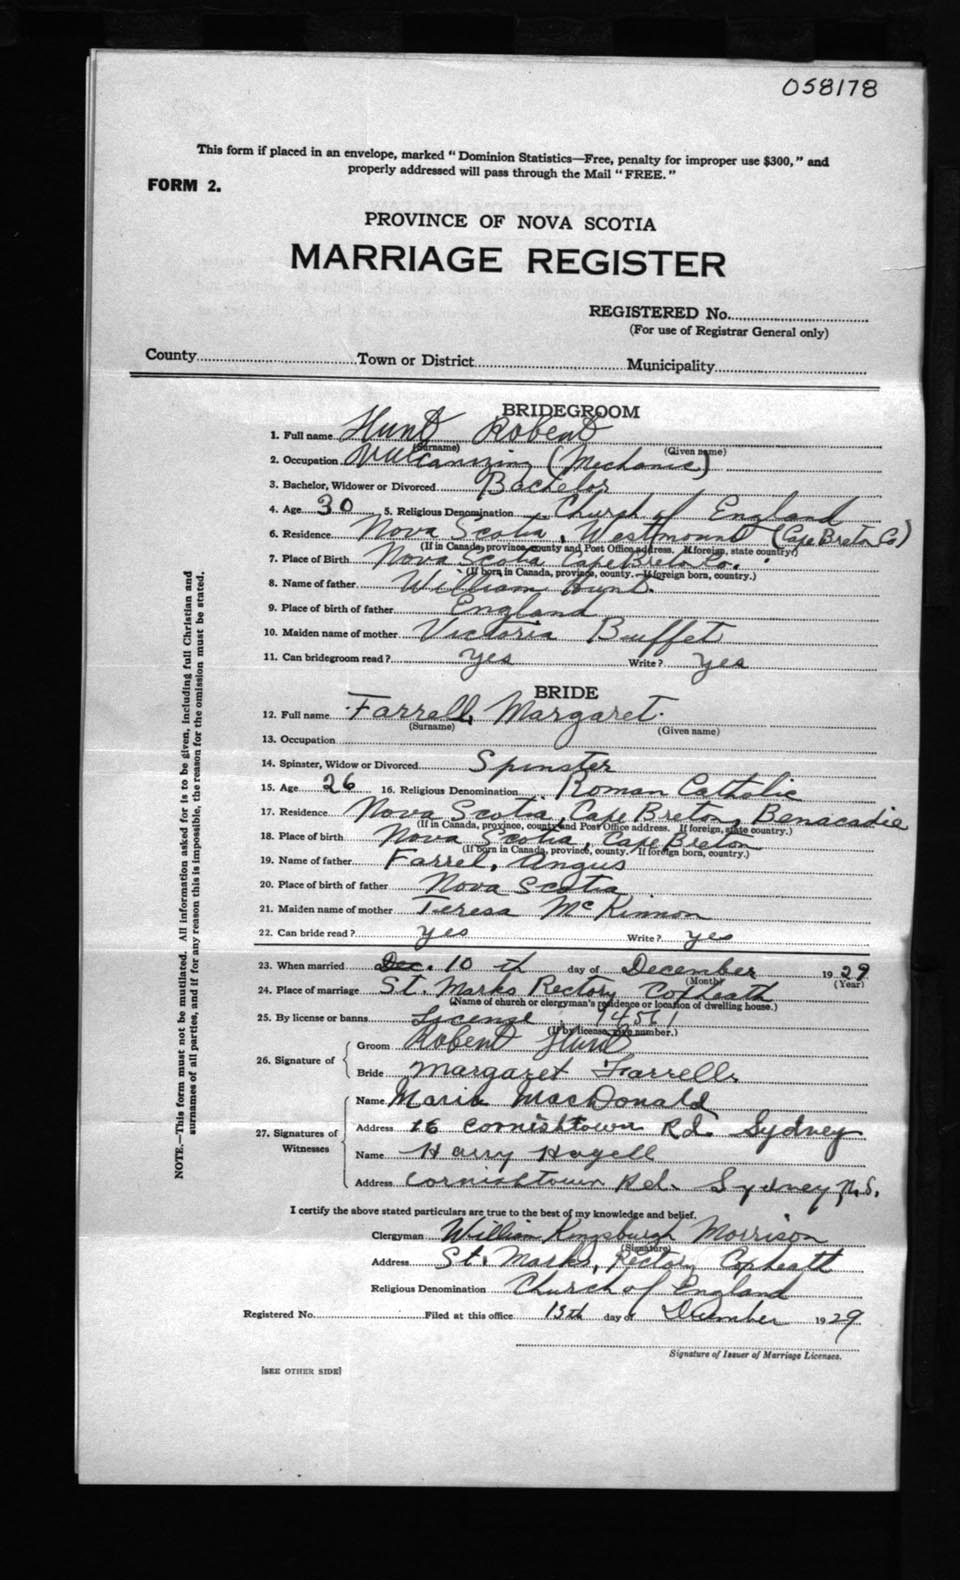 058178
This form if placed in an envelope, marked "Dominion Statistics—Free, penalty for improper use $300," and
properly addressed will pass through the Mail "FREE."
FORM 2.
PROVINCE OF NOVA SCOTIA
MARRIAGE REGISTER
REGISTERED No.
(For use of Registrar General only)
County Town or District Municipality
BRIDEGROOM
1. Full name Hunt Robert
(Surname) (Given name)
2. Occupation Vulcanizing (Mechanic)
3. Bachelor, Widower or Divorced Bachelor
4. Age 30 5. Religious Denomination Church of England
6. Residence Nova Scotia, Westmount (Cape Breton Co)
(If in Canada, province, county and Post Office address. If foreign, state country.)
7. Place of Birth Nova Scotia Cape Breton Co.
(If born in Canada, province, county. If foreign born, country.)
8. Name of father William Hunt.
9. Place of birth of father England
10. Maiden name of mother Victoria Buffet
11. Can bridegroom read? yes Write? yes
BRIDE
12. Full name Farrell, Margaret.
(Surname) (Given name)
13. Occupation
14. Spinster, Widow or Divorced Spinster
15. Age 26 16. Religious Denomination Roman Catholic
17. Residence Nova Scotia, Cape Breton, Benacadie
(If in Canada, province, county and Post Office address. If foreign, state country.)
18. Place of birth Nova Scotia, Cape Breton
(If born in Canada, province, county. If foreign born, country.)
19. Name of father Farrel, Angus
20. Place of birth of father Nova Scotia
21. Maiden name of mother Teresa McKinnon
22. Can bride read? yes Write? yes
23. When married Dec. 10th day of December 1929
(Month) (Year)
24. Place of marriage St. Marks Rectory Coxheath
(Name of church or clergyman's residence or location of dwelling house.)
25. By license or banns License
(If by license, give number.)
26. Signature of Groom Robert Hunt
Bride Margaret Farrell
27. Signatures of Witnesses
Name Marie MacDonald
Address 16 Cornishtown Rd. Sydney
Name Harry Hagell
Address Cornishtown Rd. Sydney N.S.
I certify the above stated particulars are true to the best of my knowledge and belief.
Clergyman William Kingsburgh Morrison
(Signature)
Address St. Marks, Rectory Coxheath
Religious Denomination Church of England
Registered No. Filed at this office 13th day of December 1929
Signature of Issuer of Marriage Licenses.
[SEE OTHER SIDE]
NOTE.—This form must not be mutilated. All information asked for is to be given, including full Christian and
surnames of all parties, and if for any reason this is impossible, the reason for the omission must be stated.